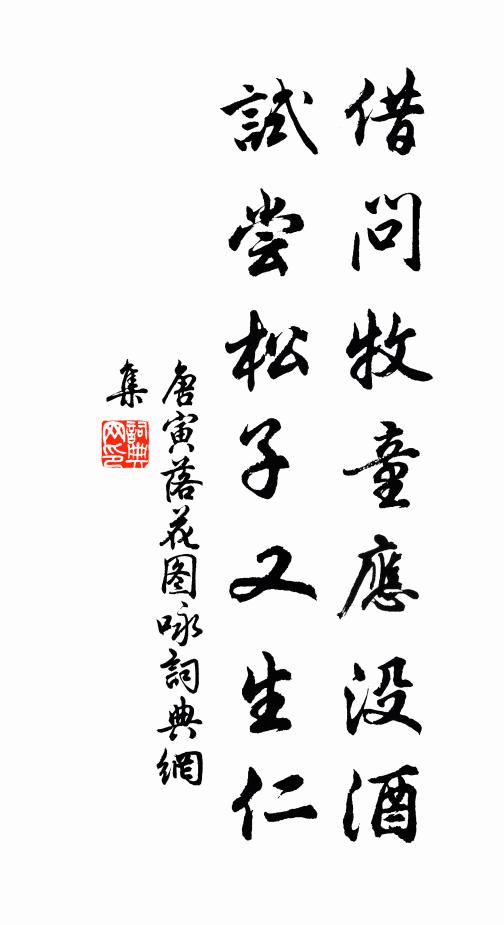 借問牧童應没酒
試尝松子又生仁
唐寅落花图咏詞典網
集
詞典
网印